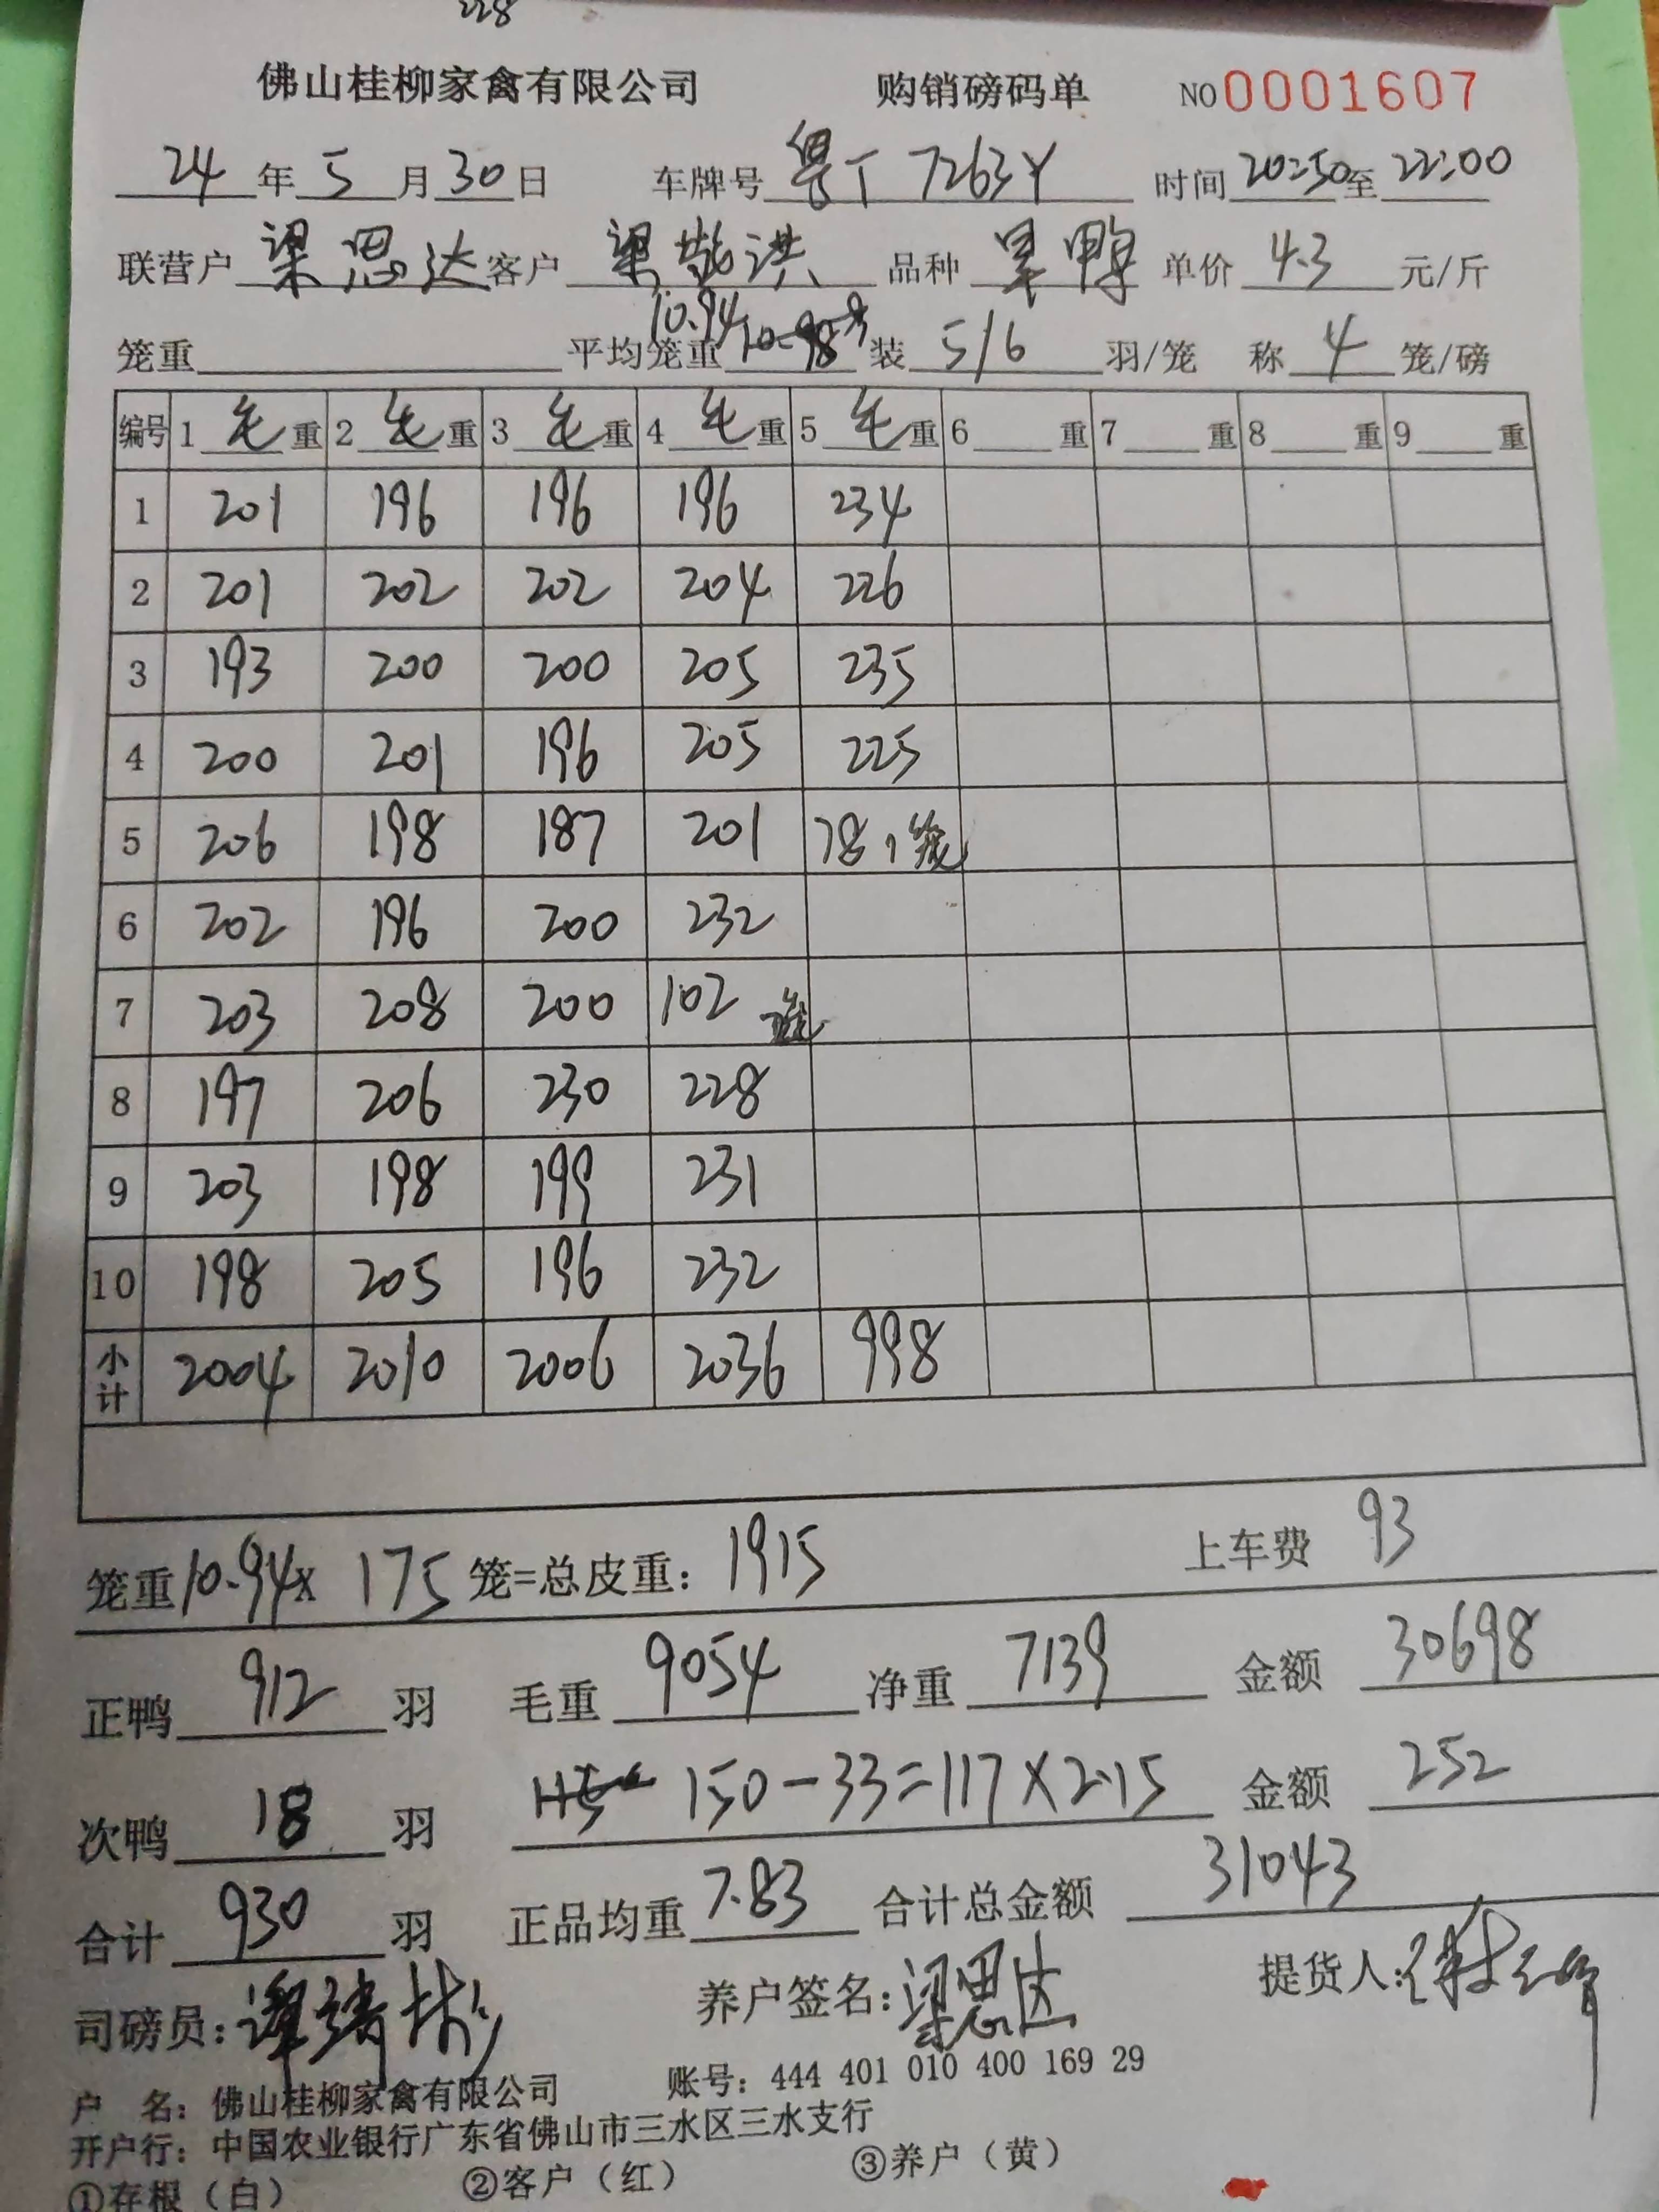 228
佛山桂柳家禽有限公司 购销磅码单 NO0001607
24年5月30日 车牌号粤T 7263Y 时间20:50至22:00
联营户梁思达客户梁敬洪 品种旱鸭 单价4.3元/斤
笼重 平均笼重10.94 装5/6羽/笼 称4笼/磅
编号 1毛重 2毛重 3毛重 4毛重 5毛重 6重 7重 8重 9重
1 201 196 196 196 234
2 201 202 202 204 226
3 193 200 200 205 235
4 200 201 196 205 225
5 206 198 187 201 78 1笼
6 202 196 200 232
7 203 208 200 102
8 197 206 230 228
9 203 198 199 231
10 198 205 196 232
小计 2004 2010 2006 2036 998
笼重10.94x 175笼=总皮重:1915 上车费 93
正鸭912羽 毛重9054 净重7139 金额30698
次鸭18羽 150-33=117X2.15 金额252
合计930羽 正品均重7.83 合计总金额31043
司磅员: 养户签名:梁思达 提货人:
户 名:佛山桂柳家禽有限公司 账号:444 401 010 400 169 29
开户行:中国农业银行广东省佛山市三水区三水支行
①存根(白) ②客户(红) ③养户(黄)